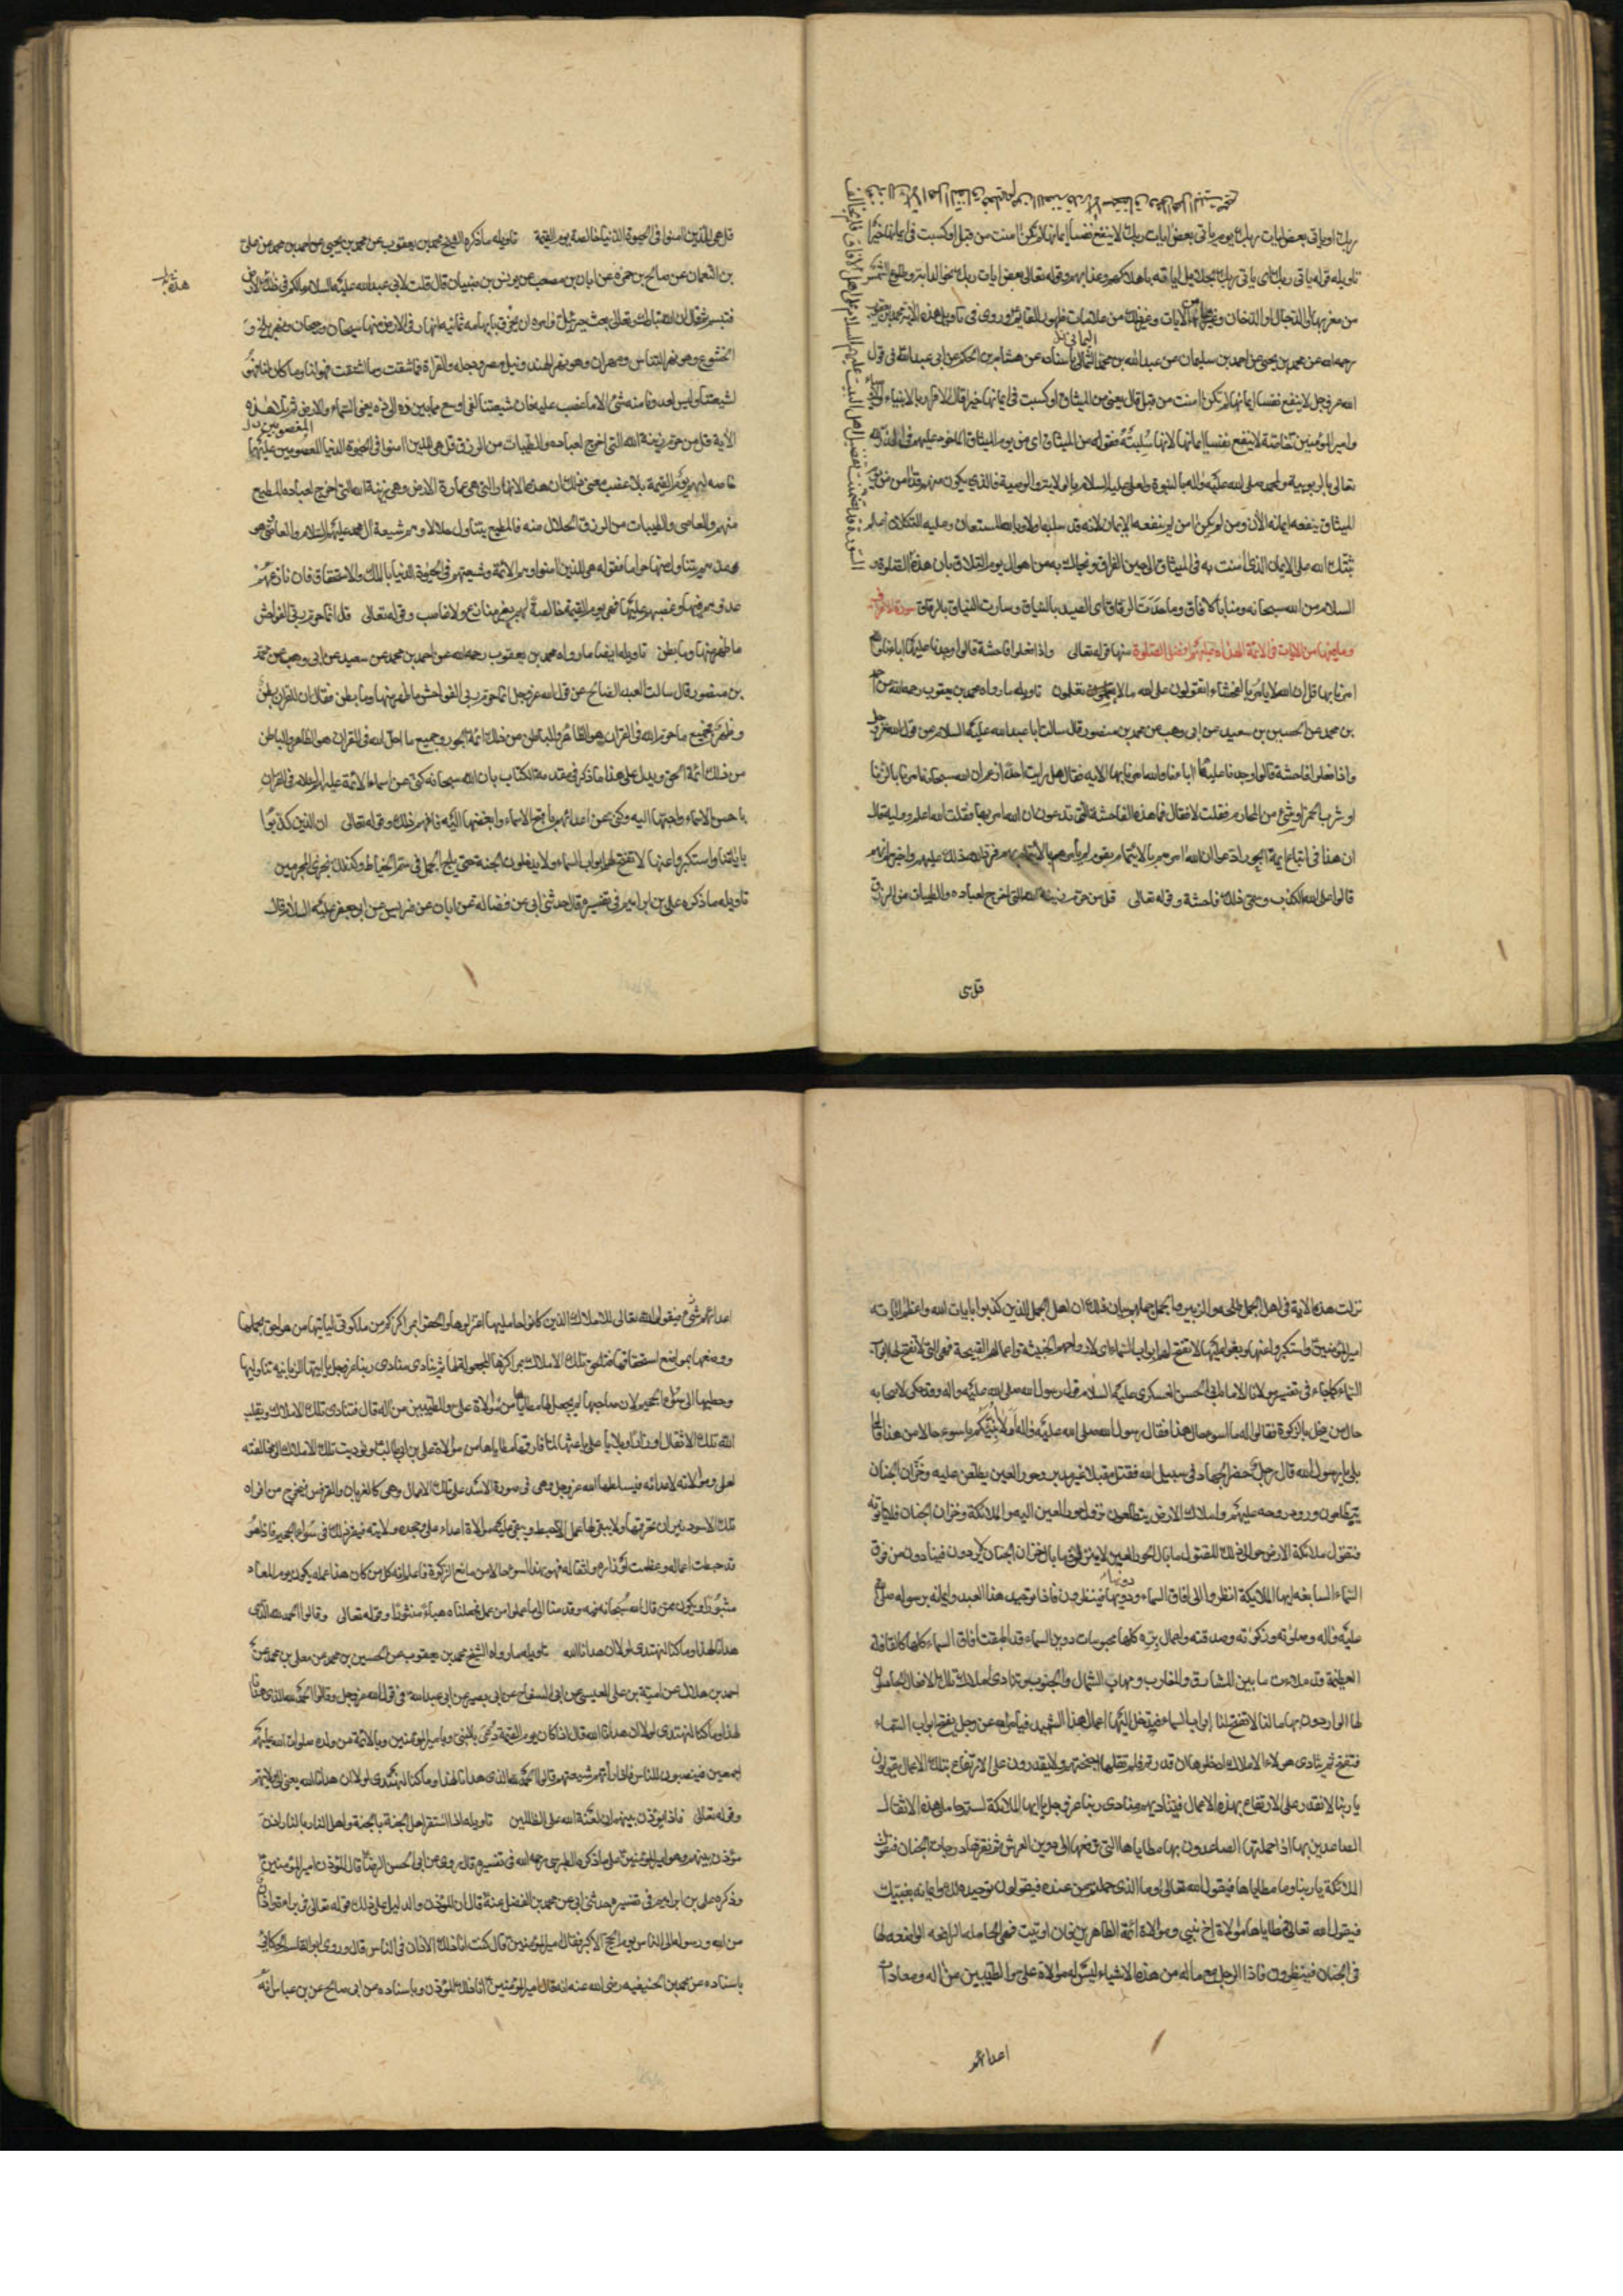 ربك او ياتي بعض ايات ربك يوم ياتي بعض ايات ربك لا ينفع نفسا ايمانها لم تكن امنت من قبل او كسبت في ايمانها خيرا
تاويله قوله ياتي ربك اي ياتي ربك بجلائل اياته باهلاكهم وعذابهم وقوله تعالى بعض ايات ربك نحو الدابة وطلوع الشمس
من مغربها والدجال والدخان وغير من الايات وغير ذلك من علامات ظهور القائم وروي في تاويل هذه الاية محمد بن يعقوب
رحمه الله عن محمد بن يحيى عن احمد بن سليمان عن عبد الله بن محمد اليماني باسناده عن هشام بن الحكم عن ابي عبد الله في قول
الله عز وجل لا ينفع نفسا ايمانها لم تكن امنت من قبل قال يعني من الميثاق او كسبت في ايمانها خيرا قال الاقرار بالانبياء والاوصياء
وامير المؤمنين خاصة لا ينفع نفسا ايمانها لانها سلبته فقوله من الميثاق اي من يوم الميثاق الماخوذ عليهم في الذر لله
تعالى بالربوبية ولمحمد صلى الله عليه واله بالنبوة ولعلي عليه السلام بالولاية والوصية فالذي يكون منهم قد امن من يوم
الميثاق ينفعه ايمانه الآن ومن لم يكن امن لم ينفعه الايمان لانه قد سلبه اولا وبالله المستعان وعليه التكلان اعلم
ثبتك الله على الايمان الذي امنت به في الميثاق الى حين الفراق ونجاك به من اهوال يوم التلاق بان هذه
السلام من الله سبحانه سورة الاعراف
وما فيها من الايات في الائمة الهداة عليهم افضل الصلوة منها قوله تعالى واذا فعلوا فاحشة قالوا وجدنا عليها اباءنا والله
امرنا بها قل ان الله لا يامر بالفحشاء اتقولون على الله ما لا تعلمون تاويله ما رواه محمد بن يعقوب رحمه الله عن احمد
بن محمد عن الحسين بن سعيد عن ابي وهب عن محمد بن منصور قال سالت ابا عبد الله عليه السلام عن قول الله عز وجل
واذا فعلوا فاحشة قالوا وجدنا عليها اباءنا والله امرنا بها الاية فقال هل رايت احدا زعم ان الله سبحانه امرنا بالزنا
او شرب الخمر او شيء من المحارم فقلت لا فقال فما هذه الفاحشة التي تدعون ان الله امر بها فقلت الله اعلم ووليه قال
ان هذا في اتباع ائمة الجور ادعوا ان الله امرهم بالايتمام بقوم لم يامرهم بالايتمام بهم فرد الله ذلك عليهم واخبر انهم
قالوا على الله الكذب وسمى ذلك فاحشة وقوله تعالى قل من حرم زينة الله التي اخرج لعباده والطيبات من الرزق
قل هي
قل هي للذين امنوا في الحيوة الدنيا خالصة يوم القيمة تاويله ما ذكره الشيخ محمد بن يعقوب عن محمد بن يحيى عن احمد بن محمد عن علي
بن النعمان عن صالح بن حمزة عن ابان بن مصعب عن يونس بن ظبيان قال قلت لابي عبد الله عليه السلام ما لكم في هذه الارض
فتبسم ثم قال ان الله تبارك وتعالى بعث جبرئيل وامره ان يخرق بابهامه ثمانية انهار في الارض منها سيحان وجيحان وهو نهر بلخ و
الخشوع وهو نهر الشاش ومهران وهو نهر الهند ونيل مصر ودجلة والفرات فما سقت وما استقت فهو لنا وما كان لنا فهو
لشيعتنا وليس لعدونا منه شيء الا ما غصب عليه فان شيعتنا لفي اوسع مما بين ذه الى ذه يعني السماء والارض ثم تلا هذه
الاية قل من حرم زينة الله التي اخرج لعباده والطيبات من الرزق قل هي للذين امنوا في الحيوة الدنيا المغصوبين عليها
خالصة لهم يوم القيمة بلا غصب معنى ذلك ان هذه الانهار والتي هي عمارة الارض وهي زينة الله التي اخرج لعباده المطيع
منهم والعاصي والطيبات من الرزق الحلال منه فالمطيع يتناول حلالا وهم شيعة ال محمد عليهم السلام والعاصي هو
عدوهم يتناول منها حراما فقوله هي للذين امنوا وهم الائمة وشيعتهم في الحيوة الدنيا بالملك والاستحقاق فان نازعهم
عدوهم فيها وغصبهم عليها فهي يوم القيمة خالصة لهم بغير منازع ولا غاصب وقوله تعالى قل انما حرم ربي الفواحش
ما ظهر منها وما بطن تاويله ايضا ما رواه محمد بن يعقوب رحمه الله عن احمد بن محمد عن سعيد عن ابي وهب عن محمد
بن منصور قال سالت العبد الصالح عن قول الله عز وجل انما حرم ربي الفواحش ما ظهر منها وما بطن فقال ان للقران بطن
وظهر فجميع ما حرم الله في القران هو الظاهر والباطن من ذلك ائمة الجور وجميع ما احل الله في القران هو الظاهر والباطن
من ذلك ائمة الحق ويدل على هذا ما ذكر في مقدمة الكتاب بان الله سبحانه كنى عن اسماء الائمة عليهم السلام في القران
باحسن الاسماء واحبها اليه وكنى عن اعدائهم باقبح الاسماء وابغضها اليه فافهم ذلك وقوله تعالى ان الذين كذبوا
باياتنا واستكبروا عنها لا تفتح لهم ابواب السماء ولا يدخلون الجنة حتى يلج الجمل في سم الخياط وكذلك نجزي المجرمين
تاويله ما ذكره علي بن ابراهيم في تفسيره قال حدثني ابي عن فضالة عن ابان عن ضريس عن ابي جعفر عليه السلام قال
نزلت هذه الاية في اهل الجمل طلحة والزبير والجمل جملهم وبيان ذلك ان اهل الجمل الذين كذبوا بايات الله واعظم اياته
امير المؤمنين واستكبروا عنها وبغوا عليها لا تفتح لهم ابواب السماء اي لارواحهم الخبيثة واعمالهم القبيحة فهي التي لا تفتح لها ابواب
السماء كما جاء في تفسير مولانا الامام ابي الحسن العسكري عليه السلام قوله رسول الله صلى الله عليه واله وقد حكى لاصحابه
حال من بخل بالزكوة فقالوا له ما اسوء حال هذا فقال رسول الله صلى الله عليه واله اولا انبئكم باسوء حالا من هذا قالوا
بلى يا رسول الله قال رجل حضر الجهاد في سبيل الله فقتل مقبلا غير مدبر وحور العين يطلعن عليه وخزان الجنان
يتطلعون ورود روحه عليهم واملاك الارض يتطلعون نزول حور العين اليه والملائكة وخزان الجنان فلا ياتونه
فتقول ملائكة الارض حوالي ذلك المقتول ما بال الحور العين لا ينزلن اليه وما بال خزان الجنان لا يردون فينادون من فوق
السماء السابعة ايها الملائكة انظروا الى افاق السماء ودوينها فينظرون فاذا توحيد هذا العبد وايمانه برسوله صلى الله
عليه واله وصلوته وزكوته وصدقته واعمال بره كلها محبوسات دوين السماء قد طبقت افاق السماء كلها كالقافلة
العظيمة قد ملات ما بين المشارق والمغارب ومهاب الشمال والجنوب تنادي املاك تلك الاثقال الحاملون
لها الواردون بها ما لنا لا تفتح لنا ابواب السماء لندخل اليها اعمال هذا الشهيد فيامر الله عز وجل بفتح ابواب السماء
فتفتح ثم ينادي هؤلاء الاملاك ادخلوها ان قدرتم فلم تقلها اجنحتهم ولا يقدرون على الارتفاع بتلك الاعمال فيقولون
يا ربنا لا نقدر على الارتفاع بهذه الاعمال فيناديهم منادي ربنا عز وجل يا ايها الملائكة لستم حمالي هذه الاثقال
الصاعدين بها اذ حملتها الصاعدون بها مطاياها التي ترفعها الى دوين العرش ثم تقرها درجات الجنان فتقول
الملائكة يا ربنا وما مطاياها فيقول الله تعالى وما الذي حملتم من عنده فيقولون توحيده لك وايمانه بنبيك
فيقول الله تعالى فمطاياها موالاة اخي نبيي وموالاة ائمة الطاهرين فان اوتيت فهي الحاملة الرافعة الواضعة لها
في الجنان فينظرون فاذا الرجل مع ما له من هذه الاشياء ليس له موالاة علي والطيبين من اله ومعاداة
اعدائهم
اعدائهم شيء فيقول الله تعالى للاملاك الذين كانوا حامليها اعتزلوها والحقوا بمراكزكم من ملكوتي لياتيها من هو احق بحملها
ووضعها بموضع استحقاقها فتلحق تلك الاملاك بمراكزها المجعولة لها ثم ينادي منادي ربنا عز وجل يا ايتها الزبانية تناوليها
وحطيها الى سواء الجحيم لان صاحبها لم يجعل لها مطايا من موالاة علي والطيبين من اله قال فتنادي تلك الاملاك ويقلب
الله تلك الاثقال اوزارا وبلايا على باعثها لما فارقها مطاياها من موالاة علي بن ابي طالب ونوديت تلك الاملاك الى مخالفته
لعلي وموالاته لاعدائه فيسلطها الله عز وجل وهي في صورة الاسد على تلك الاعمال وهي كالغربان والقرقس فيخرج من افواه
تلك الاسود نيران تحرقها ولا يبقى لها عمل الا احبط ويبقى عليه موالاة اعداء علي وجحده ولايته فيقره ذلك في سواء الجحيم فاذا هو
قد حبطت اعماله وعظمت اوزاره واثقاله فهو من هذا اسوء حالا من مانع الزكوة فاعلم انه كل من كان هذا عمله يكون يوم المعاد
مثبورا ويكون ممن قال الله سبحانه فيه وقدمنا الى ما عملوا من عمل فجعلناه هباء منثورا وقوله تعالى وقالوا الحمد لله الذي
هدانا لهذا وما كنا لنهتدي لولا ان هدانا الله تاويله ما رواه الشيخ محمد بن يعقوب عن الحسين بن محمد عن معلى بن محمد عن
احمد بن هلال عن امية بن علي القيسي عن ابي السفاتج عن ابي بصير عن ابي عبد الله في قول الله عز وجل وقالوا الحمد لله الذي هدانا
لهذا وما كنا لنهتدي لولا ان هدانا الله قال اذا كان يوم القيمة دعي بالنبي وبامير المؤمنين وبالائمة من ولده صلوات الله عليهم
اجمعين فينصبون للناس فاذا راتهم شيعتهم قالوا الحمد لله الذي هدانا لهذا وما كنا لنهتدي لولا ان هدانا الله يعني الى ولايتهم
وقوله تعالى فاذن مؤذن بينهم ان لعنة الله على الظالمين تاويله اذا استقر اهل الجنة بالجنة واهل النار بالنار اذن
مؤذن بينهم وهو امير المؤمنين على ما ذكره الطبرسي رحمه الله في تفسيره قال روي عن ابي الحسن الرضا قال المؤذن امير المؤمنين
وذكره علي بن ابراهيم في تفسيره حدثني ابي عن محمد بن الفضل عنه قال ان المؤذن والدليل على ذلك قوله تعالى في براءة واذان
من الله ورسوله الى الناس يوم الحج الاكبر فقال امير المؤمنين قال كنت انا ذلك الاذان في الناس قال وروى ابو القاسم الحسكاني
باسناده عن محمد بن الحنفية رضي الله عنه انه قال امير المؤمنين انا ذلك المؤذن وباسناده عن ابي صالح عن بن عباس انه